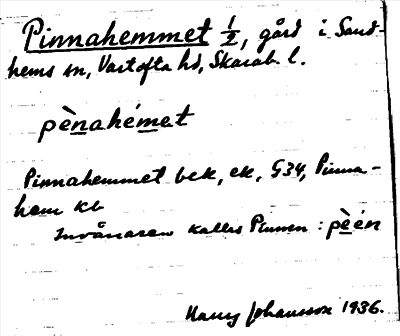 Pinnahemmet 1/2, gård i Sand-
hems sn, Vartofta hd, Skarab. l.
pènahémet
Pinnahemmet bek, ek, G34, Pinna-
hem kb
Invånaren kallas Pinnen : pèén
Harry Johansson 1936.